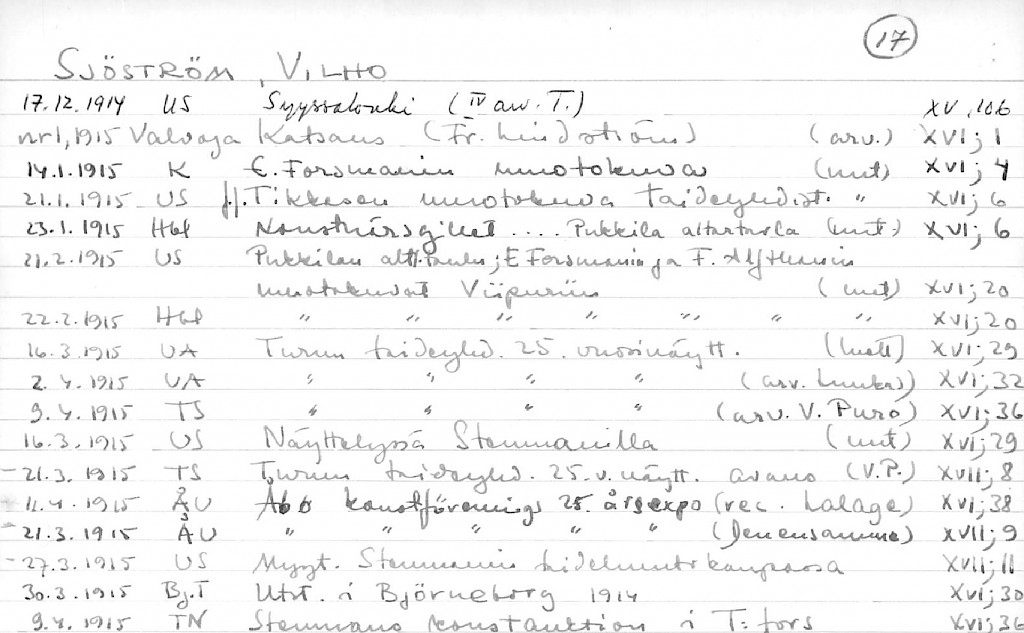 17
SJÖSTRÖM, VILHO
17.12.1914 US Syyssalonki (IV arv. T.) XV, 106
nr 1, 1915 Valvoja Katsaus (Fr. Lindström) (arv.) XVI; 1
14.1.1915 K E. Forsmanin muotokuva (uut) XVI; 4
21.1.1915 US J.J. Tikkasen muotokuva taideyhdist. " XVI; 6
23.1.1915 Hbl Konstnärsgillet .... Pukkila altartavla (uut.) XVI; 6
21.2.1915 US Pukkilan altt.taulu; E Forsmanin ja F. Alfthanin
muotokuvat Viipuriin (uut) XVI; 20
22.2.1915 Hbl " " " " " " " XVI; 20
16.3.1915 UA Turun taideyhd. 25. vuosinäytt. XVI; 29
2.4.1915 UA " " " " (arv.) XVI; 32
9.4.1915 TS " " " " (arv. V. Puro) XVI; 36
16.3.1915 US Näyttelyssä Stenmanilla (uut) XVI; 29
- 21.3.1915 TS Turun taideyhd. 25.v. näytt. avaus (V.P.) XVII; 8
11.4.1915 ÅU Åbo konstförenings 25. årsexpo (rec. Lalage) XVI; 38
- 21.3.1915 ÅU " " " " " (Densamma) XVII; 9
- 27.3.1915 US Myyt. Stenmanin taidehuutokaupassa XVII; 11
30.3.1915 Bj.T Utst. i Björneborg 1914 XVI; 30
9.4.1915 TN Stenmans konstauktion i T:fors XVI; 36